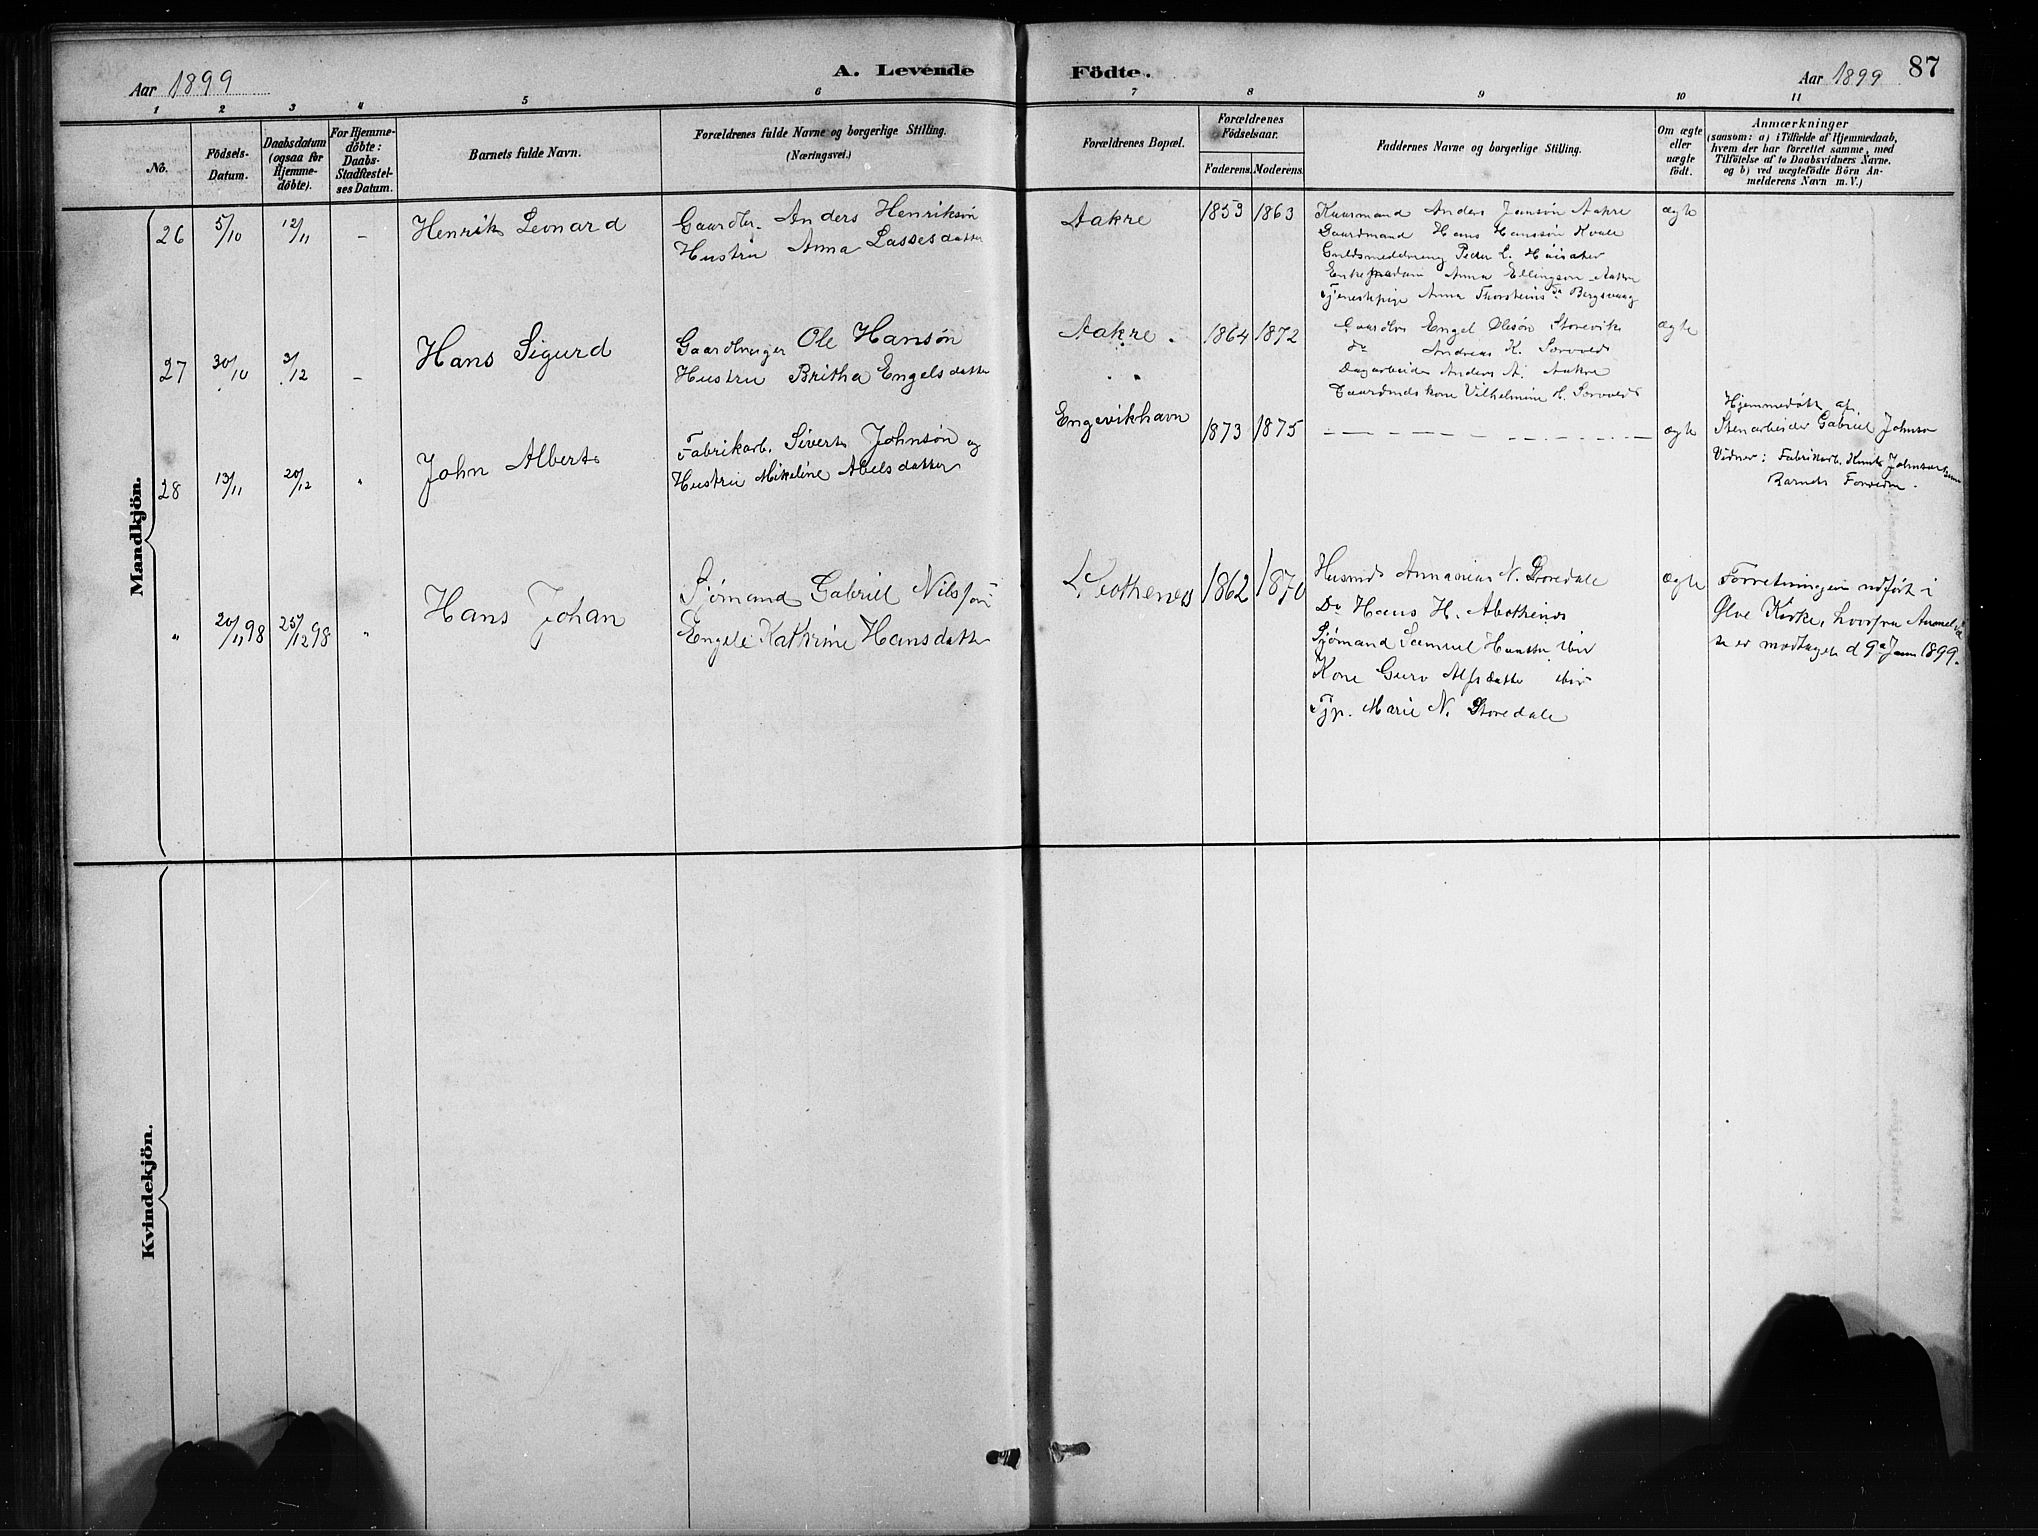 Aar 1899
A. Levende Födte.
Aar 1899
87
1 2 3 4 5 6 7 8 9 10 11
No.
Födsels-
Datum.
Daabsdatum
(ogsaa for
Hjemme-
döbte).
For Hjemme-
döbte:
Daabs-
Stadfæstel-
ses Datum.
Barnets fulde Navn.
Forældrenes fulde Navne og borgerlige Stilling.
(Næringsvei.)
Forældrenes Bopæl.
Forældrenes
Födselsaar.
Faderens. Moderens.
Faddernes Navne og borgerlige Stilling.
Om ægte
eller
uægte
födt.
Anmærkninger
(saasom: a) i Tilfælde af Hjemmedaab,
hvem der har forrettet samme, med
Tilföielse af to Daabsvidners Navne.
og b) ved uægtefödte Börn An-
melderens Navn m. V.)
Mandkjön.
26 5/10 12/11 –
Henrik Leonard
Gaardbr. Anders Henriksøn
Hustru Anna Lassesdatter
Aakre
1853 1863
Kaarmand Anders Jansøn Aakre
Gaardmand Hans Hanssøn Kvale
Guldsmedsveng Peder L.
Enkemadam Anna Ellingsen Aakre
Tjenestepige Anna Thorsteinsda Bergsvaag
ægte
27 30/10 3/12 –
Hans Sigurd
Gaardbruger Ole Hansøn
Hustru Britha Engelsdatter
Aakre.
1864 1872
Gaardbr Engel Olesøn Storevik
do Andreas K.
Dagarbeider Anders A. Aakre
Gaardmds kone Vilhelmine H.
ægte
28 13/11 20/12 "
John Albert
Fabrikarb. Sivert Johnsøn og
Hustru Mikeline Abelsdatter
Engevikhavn
1873 1875
ægte
Hjemmedøbt af
Stenarbeider Gabriel Johnsø
Vidner: Fabrikarb. Knut Johnsen
Barnets Forældre.
" 20/11 98 25/12 98 "
Hans Johan
Sjømand Gabriel Nilssøn
Engele Kathrine Hansdatter
1862 1870
Husmd Annanias N. Storedale
Do Hans H.
Sjømand Samuel ibid
Kone Guro Alfsdatter ibid
Tjp. Marie N. Storedale
ægte
Forretningen udført i
Ølve Kirke, hvorfra Anmeldel
se er modtaget d 9de Janr 1899.
Kvindekjön.